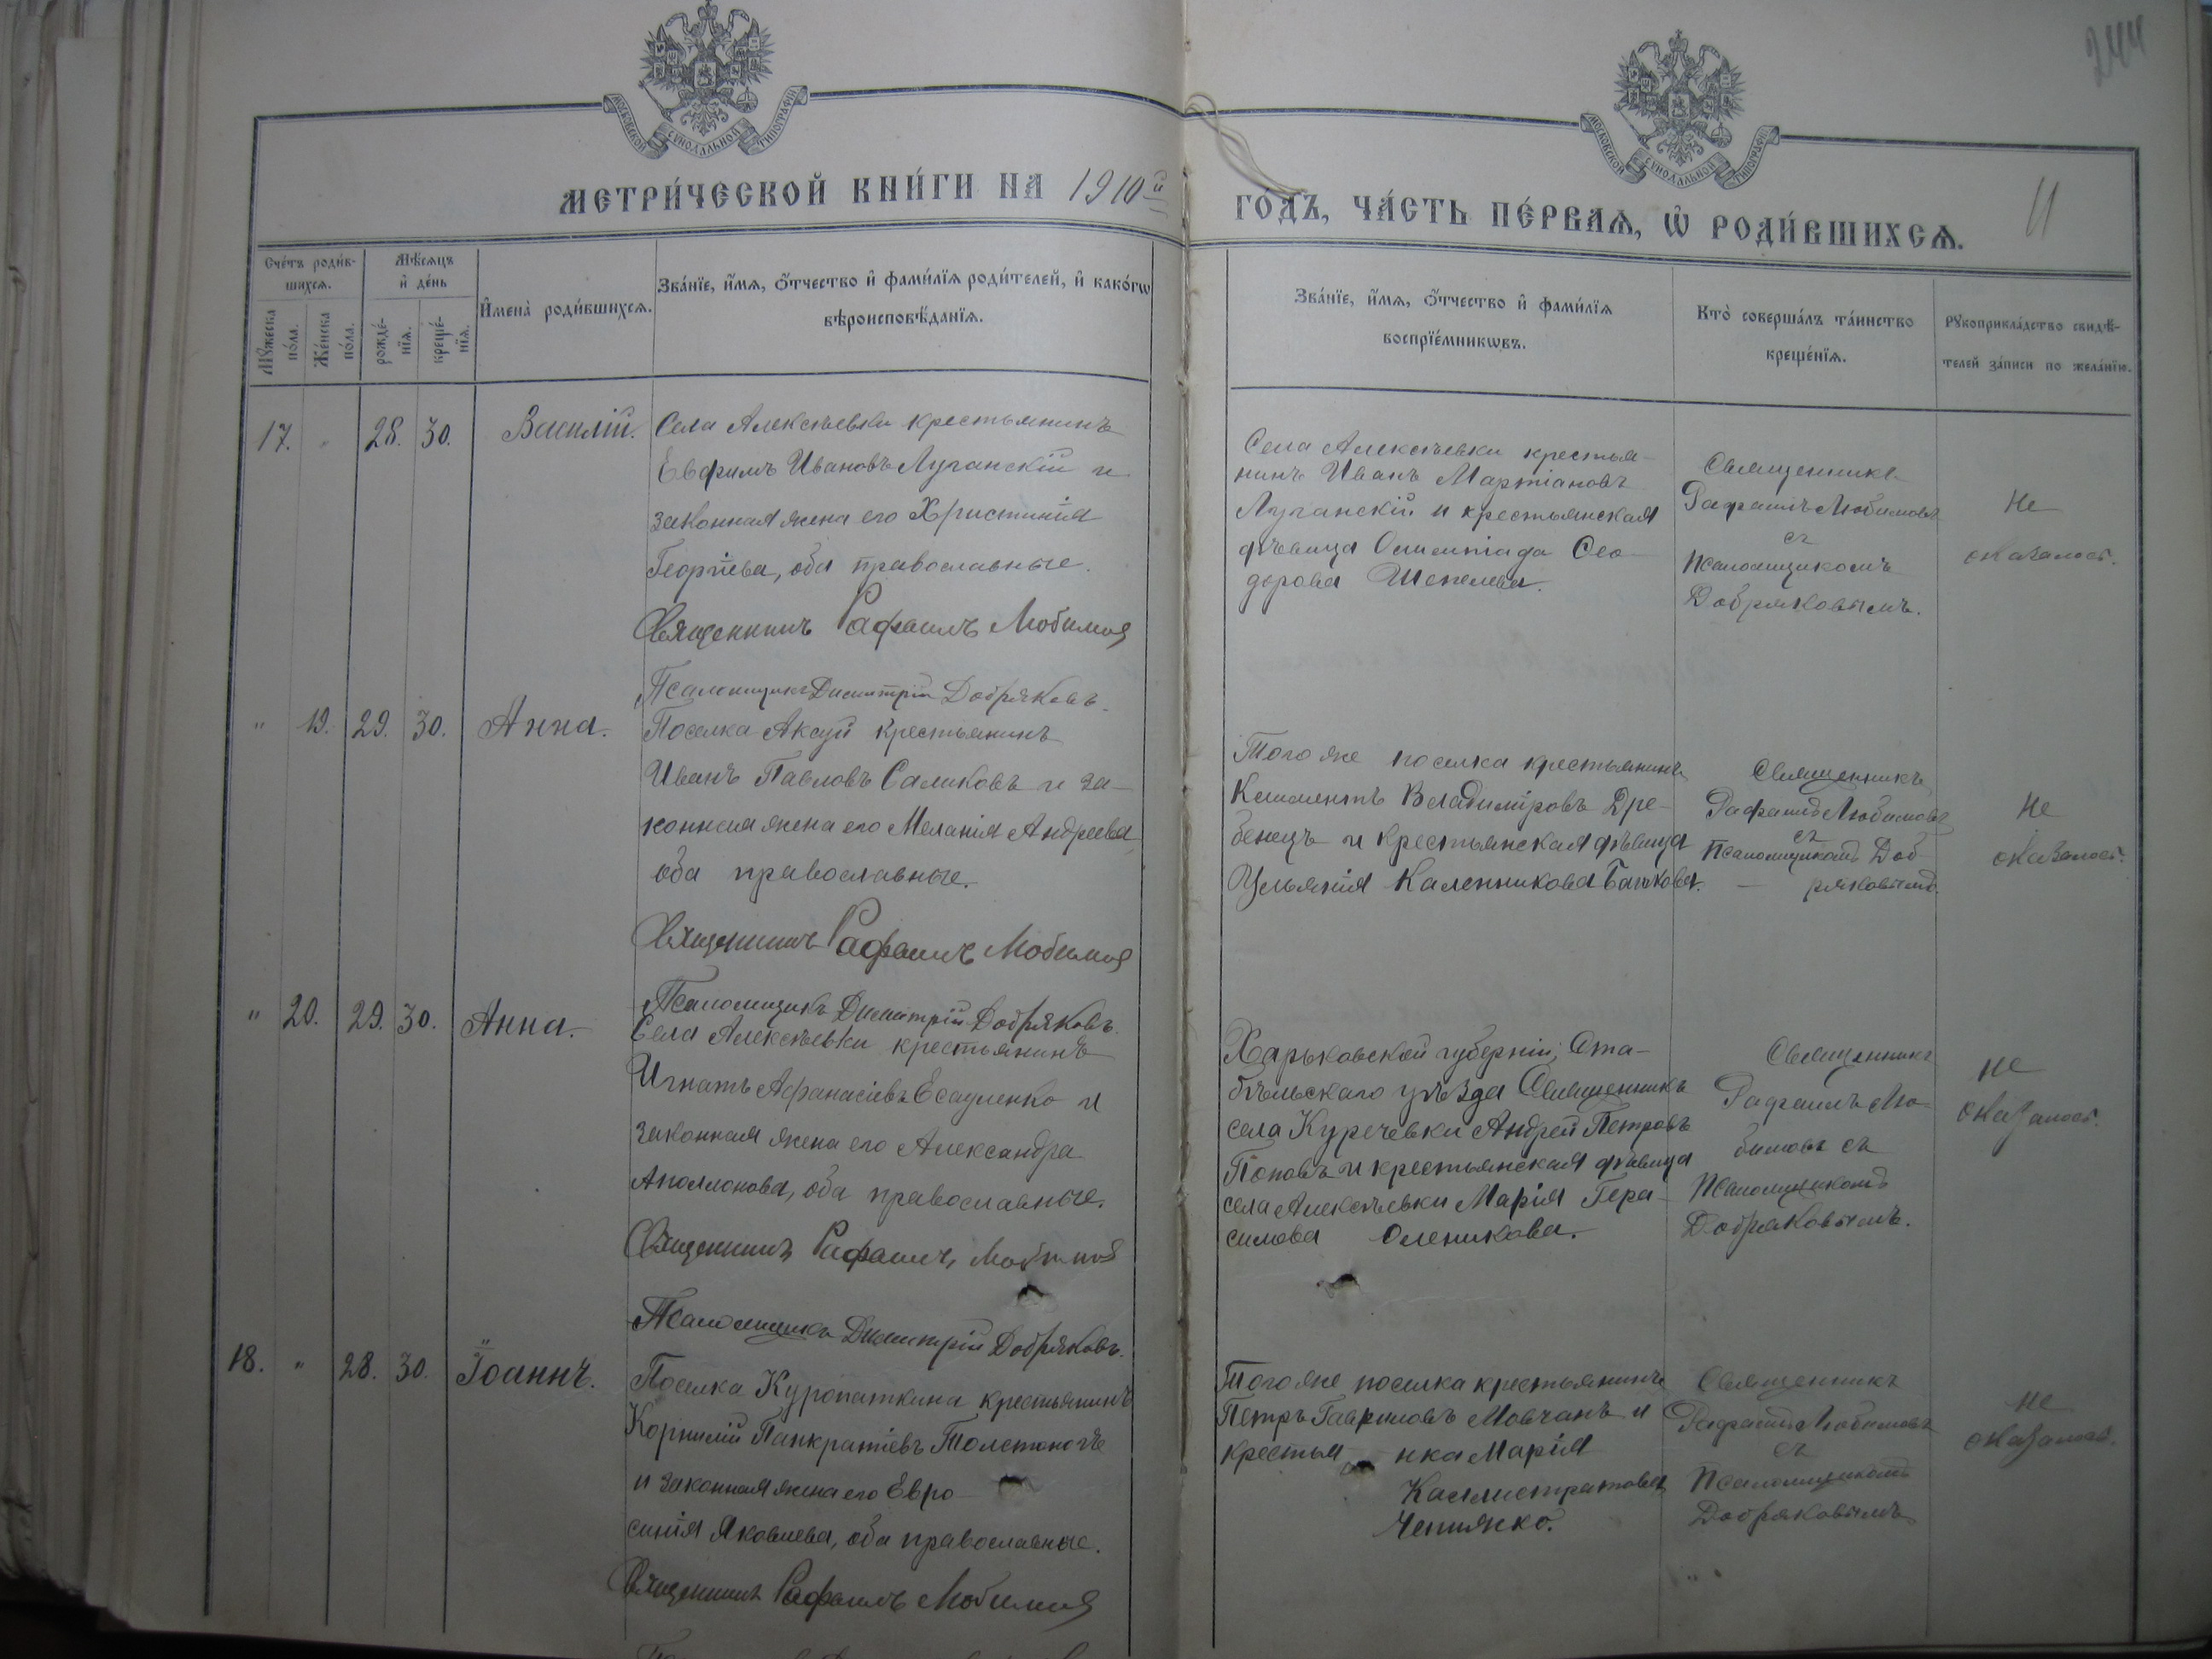 244
МОСКОВСКОЙ СУНОДАЛЬНОЙ ТИПОГРАФІИ
МОСКОВСКОЙ СУНОДАЛЬНОЙ ТИПОГРАФІИ
МЕТРИ́ЧЕСКОЙ КНИ́ГИ НА 1910й
ГО́ДЪ, ЧА́СТЬ ПЕ́РВАѦ, Ѡ҆ РОДИ́ВШИХСѦ.
11
Сче́тъ роди́в-
шихсѧ.
Мѣ́сѧцъ
и҆ де́нь
Мꙋ́жеска по́ла.
Же́нска по́ла.
рожде́-
нїѧ.
креще́-
нїѧ.
И҆мена̀ роди́вшихсѧ.
Зва́нїе, и҆́мѧ, ѻ҆́тчество и҆ фами́лїѧ роди́телей, и҆ како́гѡ
вѣроисповѣ́данїѧ.
Зва́нїе, и҆́мѧ, ѻ҆́тчество и҆ фами́лїѧ
воспрїе́мникѡвъ.
Кто̀ соверша́лъ та́инство
креще́нїѧ.
Рꙋкоприкла́дство свидѣ́-
телей за́писи по жела́нїю.
17. " 28. 30. Василій.
Села Алексѣевки крестьянинъ
Евфимъ Ивановъ Луганскій и
законная жена его Христинія
Георгіева, оба православные.
Священникъ Рафаилъ Любимов
Псаломщикъ Димитрій Добряковъ.
Села Алексѣевки крестья-
нинъ Иванъ Мартіановъ
Луганскій и крестьянская
дѣвица Олимпіада Ѳео-
дорова Шепелева.
Священникъ
Рафаилъ Любимовъ
съ
Псаломщикомъ
Добряковымъ.
Не
оказалось.
" 19. 29. 30. Анна.
Поселка Аксуй крестьянинъ
Иванъ Павловъ Саликовъ и за-
конная жена его Меланія Андреева
оба православные.
Священникъ Рафаилъ Любимов
Псаломщикъ Димитрій Добряковъ.
Того же поселка крестьянинъ
Климентъ Владиміровъ Дре-
бенецъ и крестьянская дѣвица
Ульянія Каленникова Бачкова.
Священникъ
Рафаилъ Любимовъ
съ
Псаломщикомъ Доб-
ряковымъ.
Не
оказалось.
" 20. 29. 30. Анна.
Села Алексѣевки крестьянинъ
Игнатъ Афанасіевъ Есауленко и
законная жена его Александра
Аполлонова, оба православные.
Священникъ Рафаилъ Любимов
Псаломщикъ Димитрій Добряковъ.
Харьковской губерніи, Ста-
бѣльскаго уѣзда Священникъ
села Курячевки Андрей Петровъ
Поповъ и крестьянская дѣвица
села Алексѣевки Марія Гера-
симова Оленикова.
Священникъ
Рафаилъ Лю-
бимовъ съ
Псаломщикомъ
Добряковымъ.
не
оказалось.
18. " 28. 30. Іоаннъ.
Поселка Куропаткина крестьянинъ
Корнилій Панкратіевъ Толстоногъ
и законная жена его Евро-
синія Яковлева, оба православные.
Священникъ Рафаилъ Любимов
Того же поселка крестьянинъ
Петръ Гавриловъ Мовчанъ и
крестьянка Марія
Каллистратова
Священникъ
Рафаилъ Любимовъ
съ
Псаломщикомъ
Добряковымъ
не
оказалось.